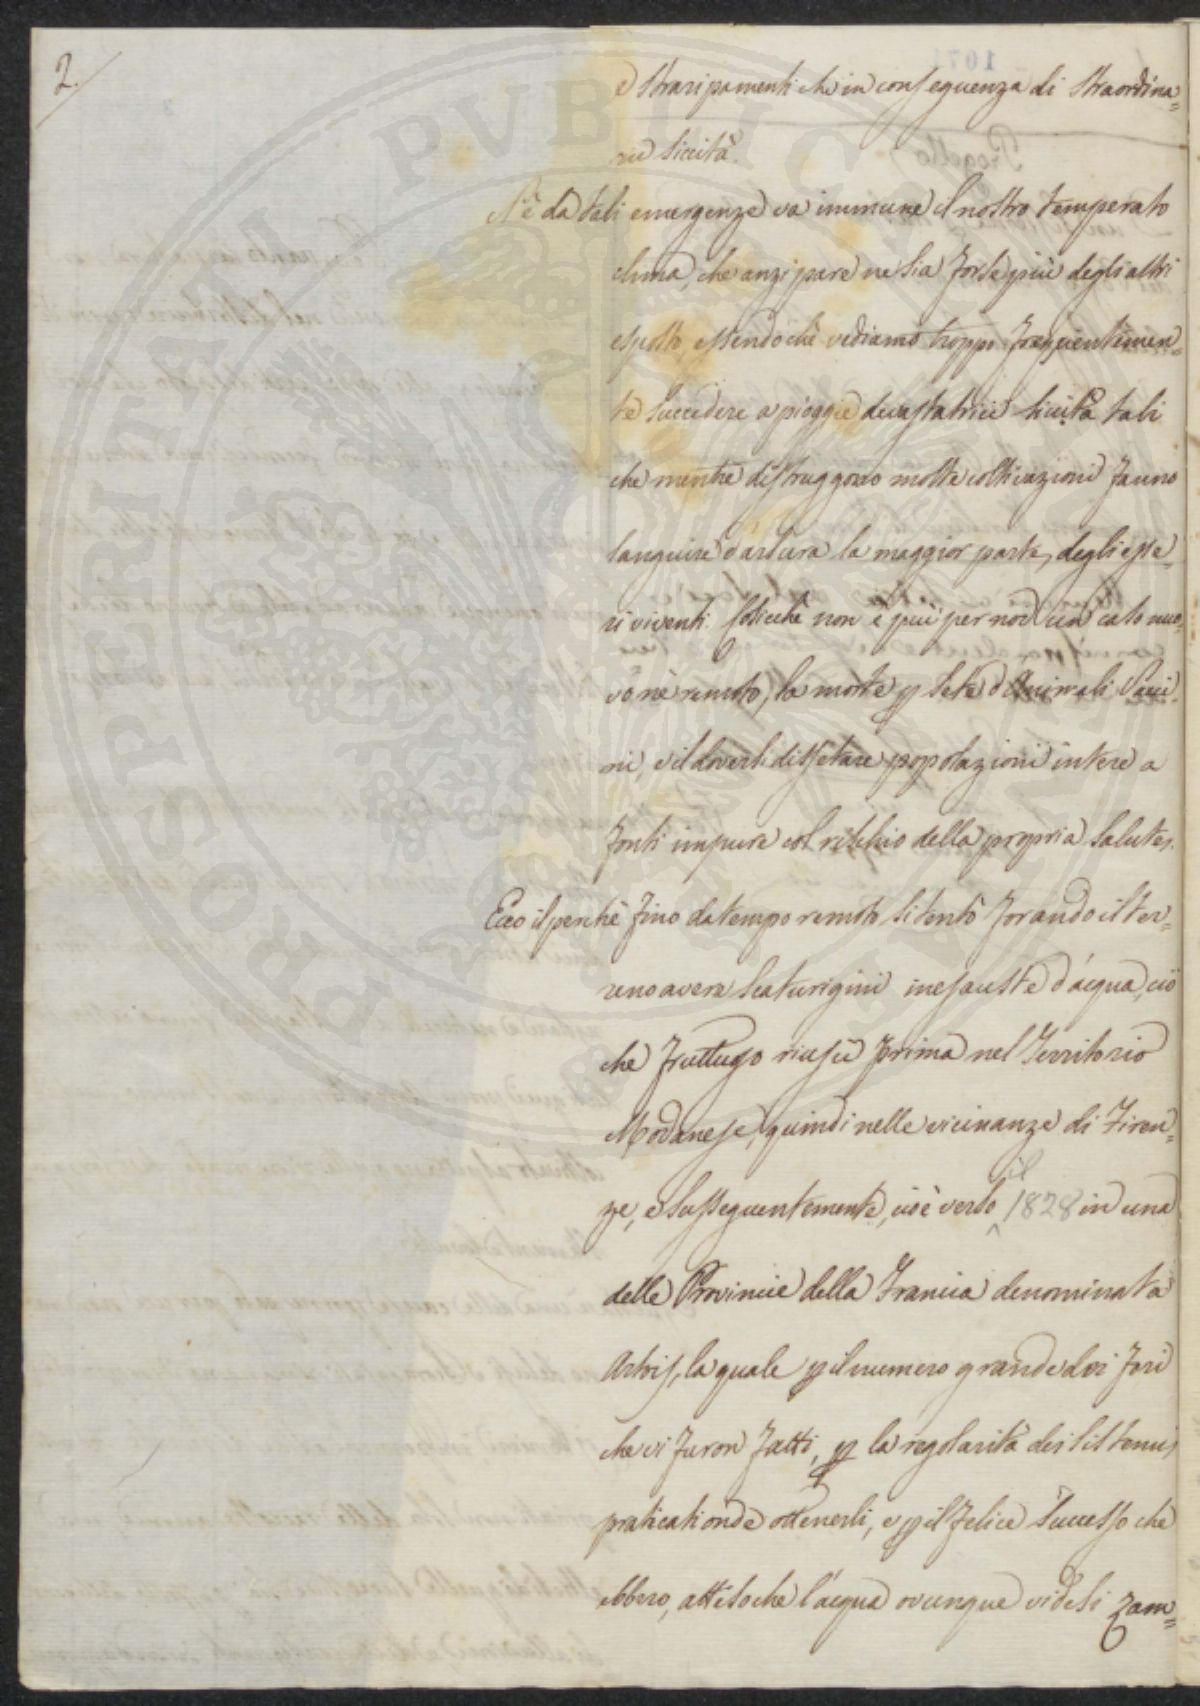 2.
e Straripamenti che in conseguenza di Straordina=
rie Siccità.
Nè da tali emergenze va immune il nostro temperato
clima, che anzi pare ne sia forse più degli altri
esposto, essendochè vediamo troppo frequentemen=
te succedere a pioggie devastatrici siccità tali
che mentre distruggono molte coltivazioni fanno
languire d'arsura la maggior parte degli esse=
ri viventi. Sicchè non è più per noi un caso nuo=
vo nè remoto, la morte p sete d'Animali Vacci=
ni, e il doversi dissetare popolazioni intere a
fonti impure col rischio della propria Salute.
Ecco il perchè fino da tempo remoto si tentò forando il ter=
reno avere Scaturigini inesauste d'acqua, ciò
che fruttuoso riuscì prima nel Territorio
Modanese, quindi nelle vicinanze di Firen=
ze, e Sussequentemente, cioè verso il 1828 in una
delle Provincie della Francia denominata
Artois, la quale p il numero grande dei fori
che vi furon fatti, p la regolarità dei sistemi
praticati onde ottenerli, e p il felice Successo che
ebbero, attesoche l'acqua ovunque videsi zam=